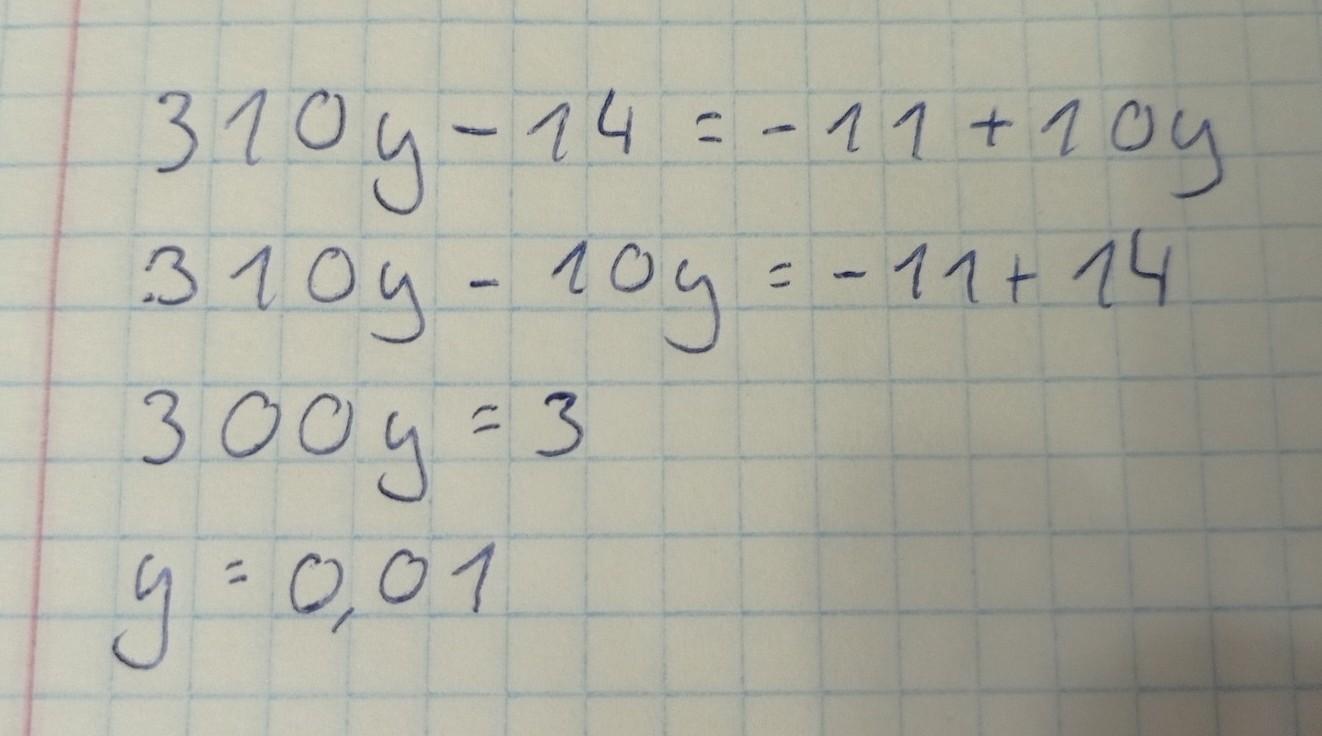 310y - 14 = -11 + 10y
310y - 10y = -11 + 14
300y = 3
y = 0,01